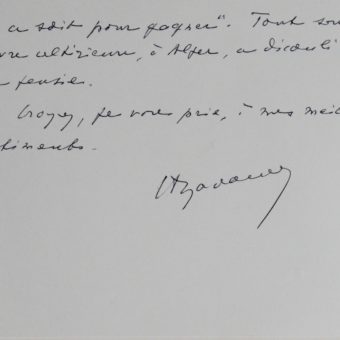 a soit pour gagner". Tout son
vre ultérieure, à Alger, a découlé
pensée.
Croyez, je vous prie, à mes meil
timents.